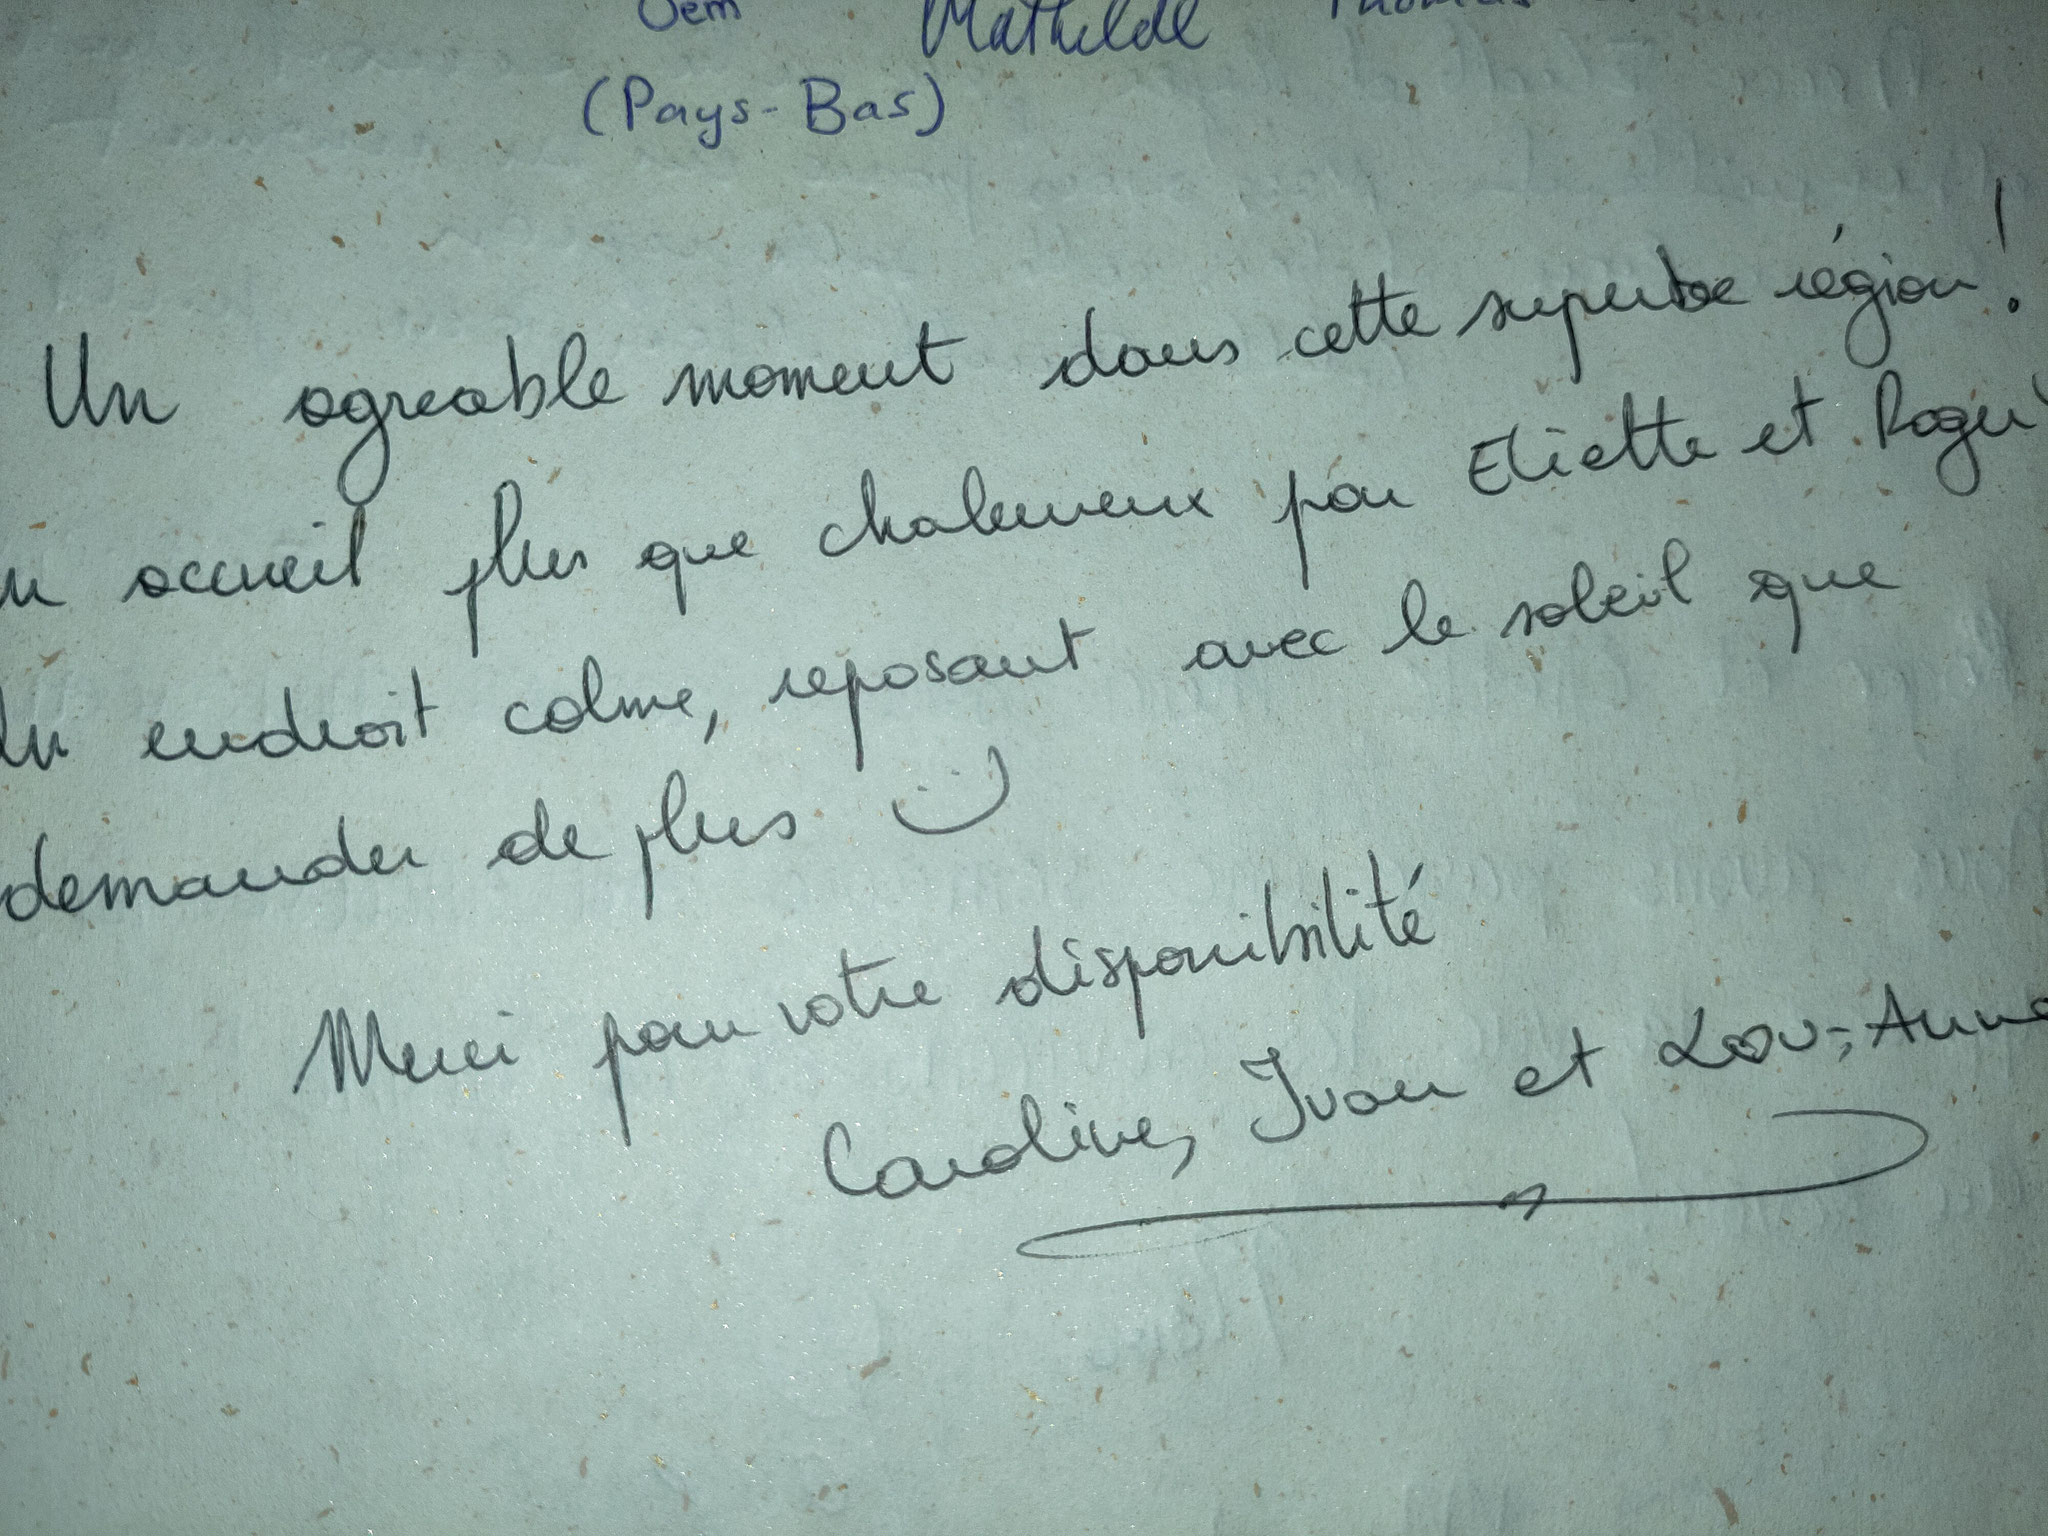 Oem Mathilde Thomas
(Pays-Bas)
Un agreable moment dans cette superbe région!
un accueil plus que chaleureux par Eliette et Roger
Un endroit calme, reposant avec le soleil que
demander de plus :)
Merci pour votre disponibilité
Caroline, Ivan et Lou-Anne